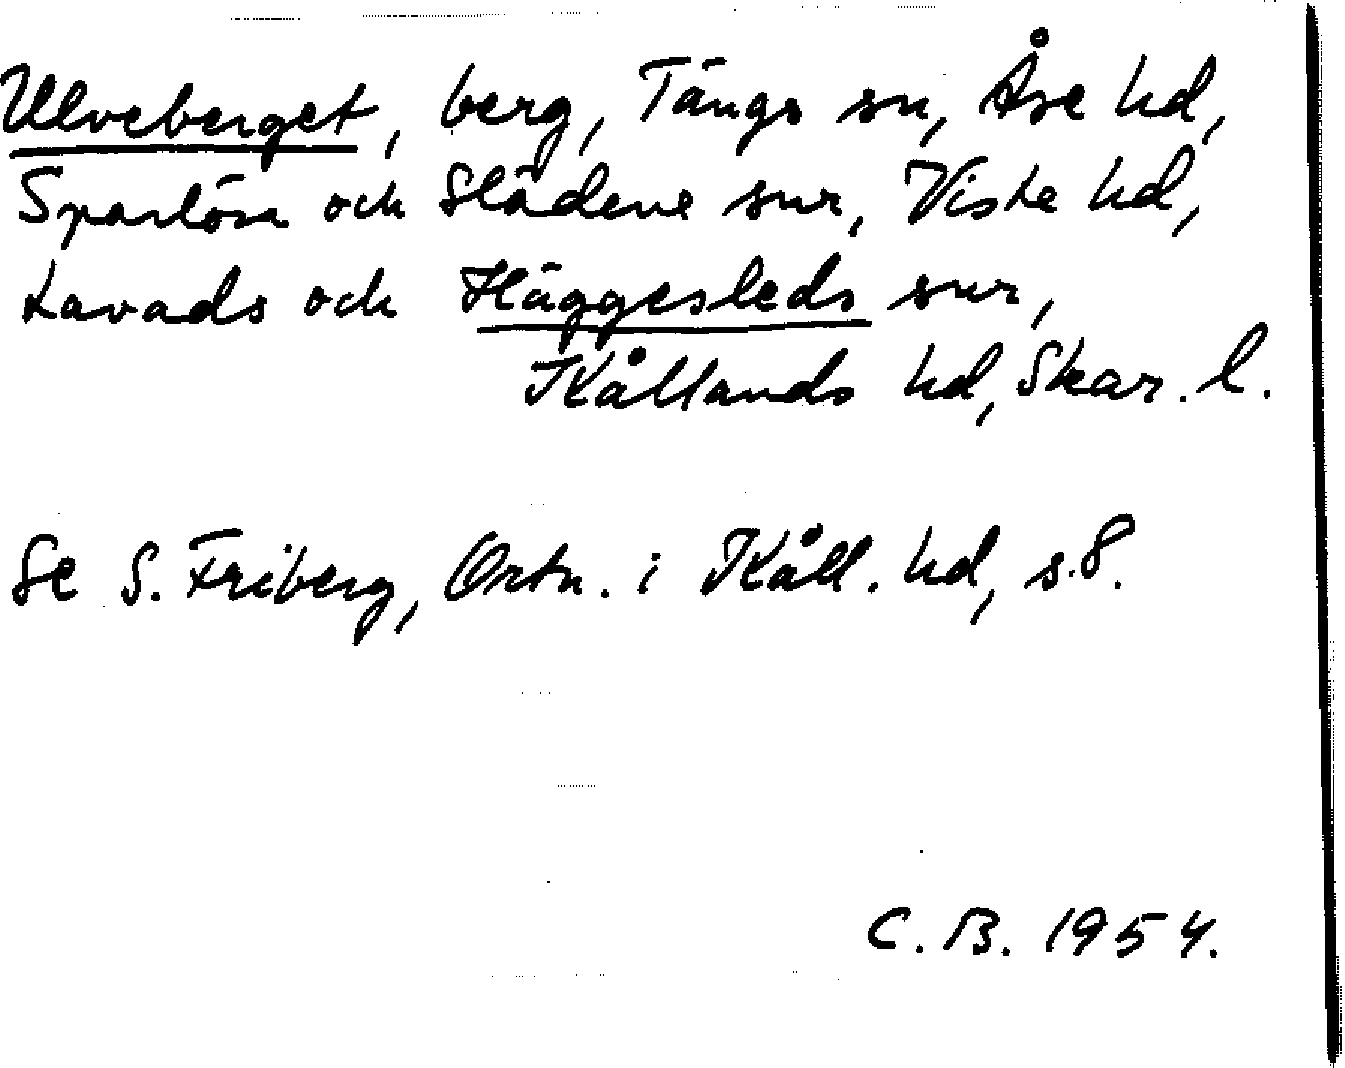 Ulveberget, berg, Tängs sn, Åse hd,
Sparlösa och Slädene snr, Viste hd,
Lavads och Häggesleds snr,
Kållands hd, Skar. l.
Se S. Friberg, Ortn. i Kåll. hd, s. 8.
C. B. 1954.